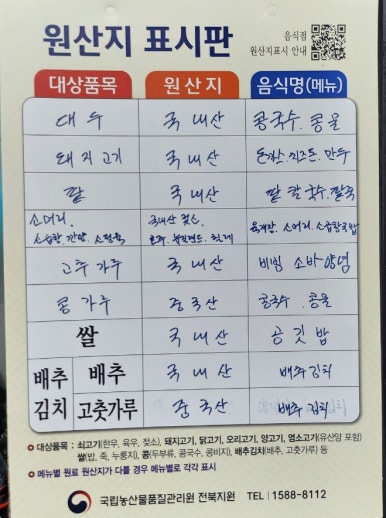 원산지 표시판
음식점
원산지표시 안내
대상품목 원산지 음식명(메뉴)
대두 국내산 콩국수. 콩물
돼지고기 국내산 돈까스. 치즈돈. 만두
팥 국내산 팥칼국수. 팥죽
소머리. 국내산 육우.
육개장. 소머리. 소곱창국밥
고추가루 국내산 비빔 소바양념
콩가루 중국산 콩국수. 콩물
쌀 국내산 공깃밥
배추김치 배추 국내산 배추김치
고춧가루 중국산 배추김치
• 대상품목 : 쇠고기(한우, 육우, 젖소), 돼지고기, 닭고기, 오리고기, 양고기, 염소고기(유산양 포함)
쌀(밥, 죽, 누룽지), 콩(두부류, 콩국수, 콩비지), 배추김치(배추, 고춧가루) 등
• 메뉴별 원료 원산지가 다를 경우 메뉴별로 각각 표시
국립농산물품질관리원 전북지원 TEL | 1588-8112